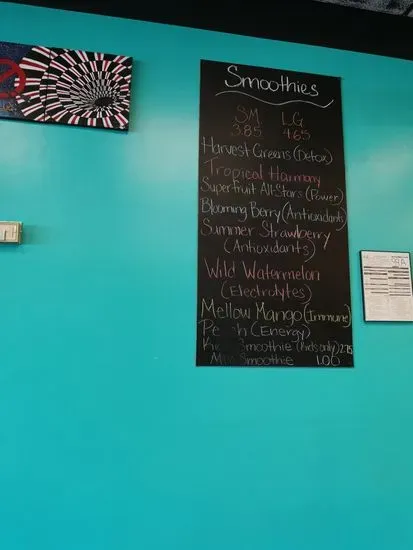 Smoothies
SM LG
3.85 4.65
Harvest Greens (Detox)
Tropical Harmony
Superfruit All-Stars (Power)
Blooming Berry (Antioxidants)
Summer Strawberry
(Antioxidants)
Wild Watermelon
(Electrolytes)
Mellow Mango (Immune)
Pe ch (Energy)
Smoothie (Kids only) 2.75
Smoothie 1.00